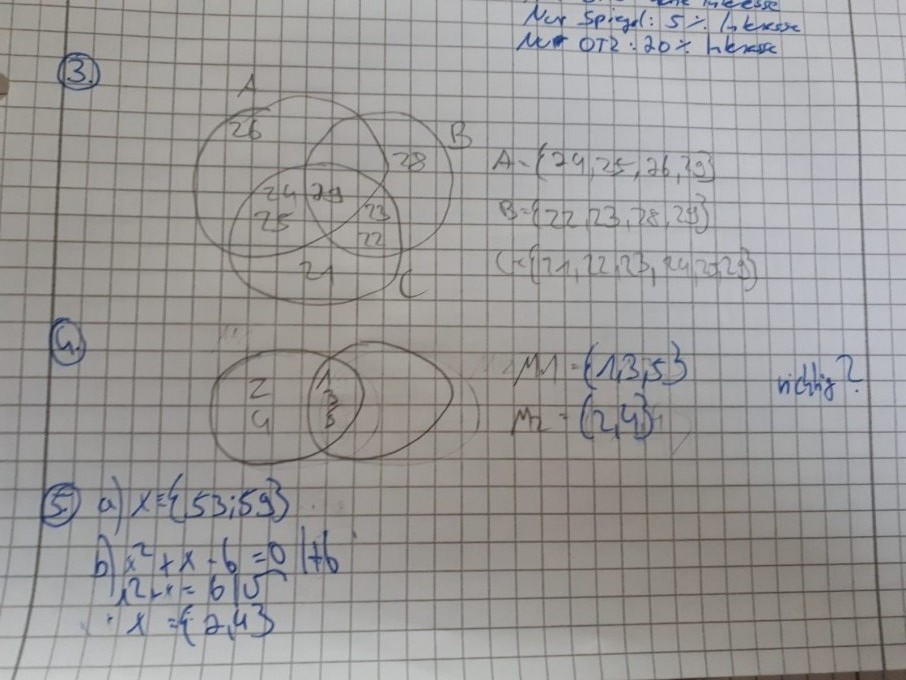 Nur Spiegel: 5% Interesse
Nur OTZ: 20% Interesse
3.
A
26
B
28
24 29
25
23
22
21
C
A={24,25,26,29}
B={22,23,28,29}
C={21,22,23,24,25,29}
4.
2
4
1
3
5
M1={1,3,5}
M2={2,4}
richtig?
5. a) x={53;59}
b) x²+x-6=0 |+6
x²+x=6 |√
x={2,4}